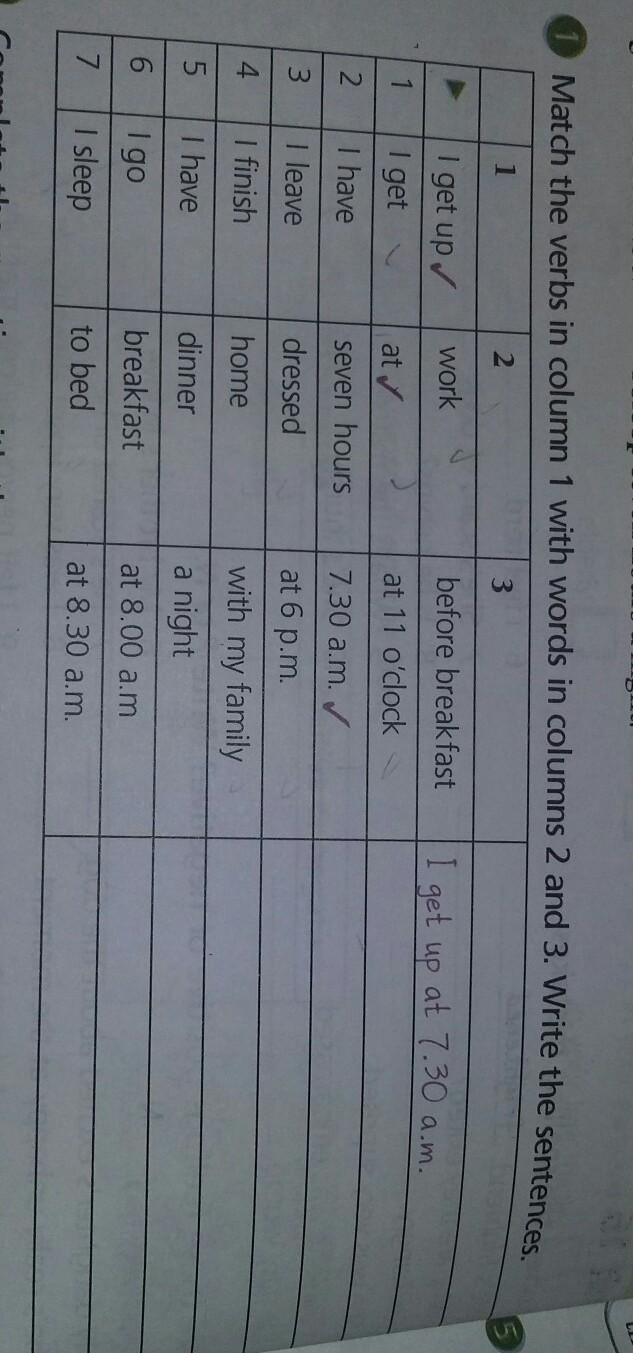 1 Match the verbs in column 1 with words in columns 2 and 3. Write the sentences.
1 2 3
▶ I get up ✓ work before breakfast I get up at 7.30 a.m.
1 I get at ✓ at 11 o'clock
2 I have seven hours 7.30 a.m. ✓
3 I leave dressed at 6 p.m.
4 I finish home with my family
5 I have dinner a night
6 I go breakfast at 8.00 a.m
7 I sleep to bed at 8.30 a.m.
5